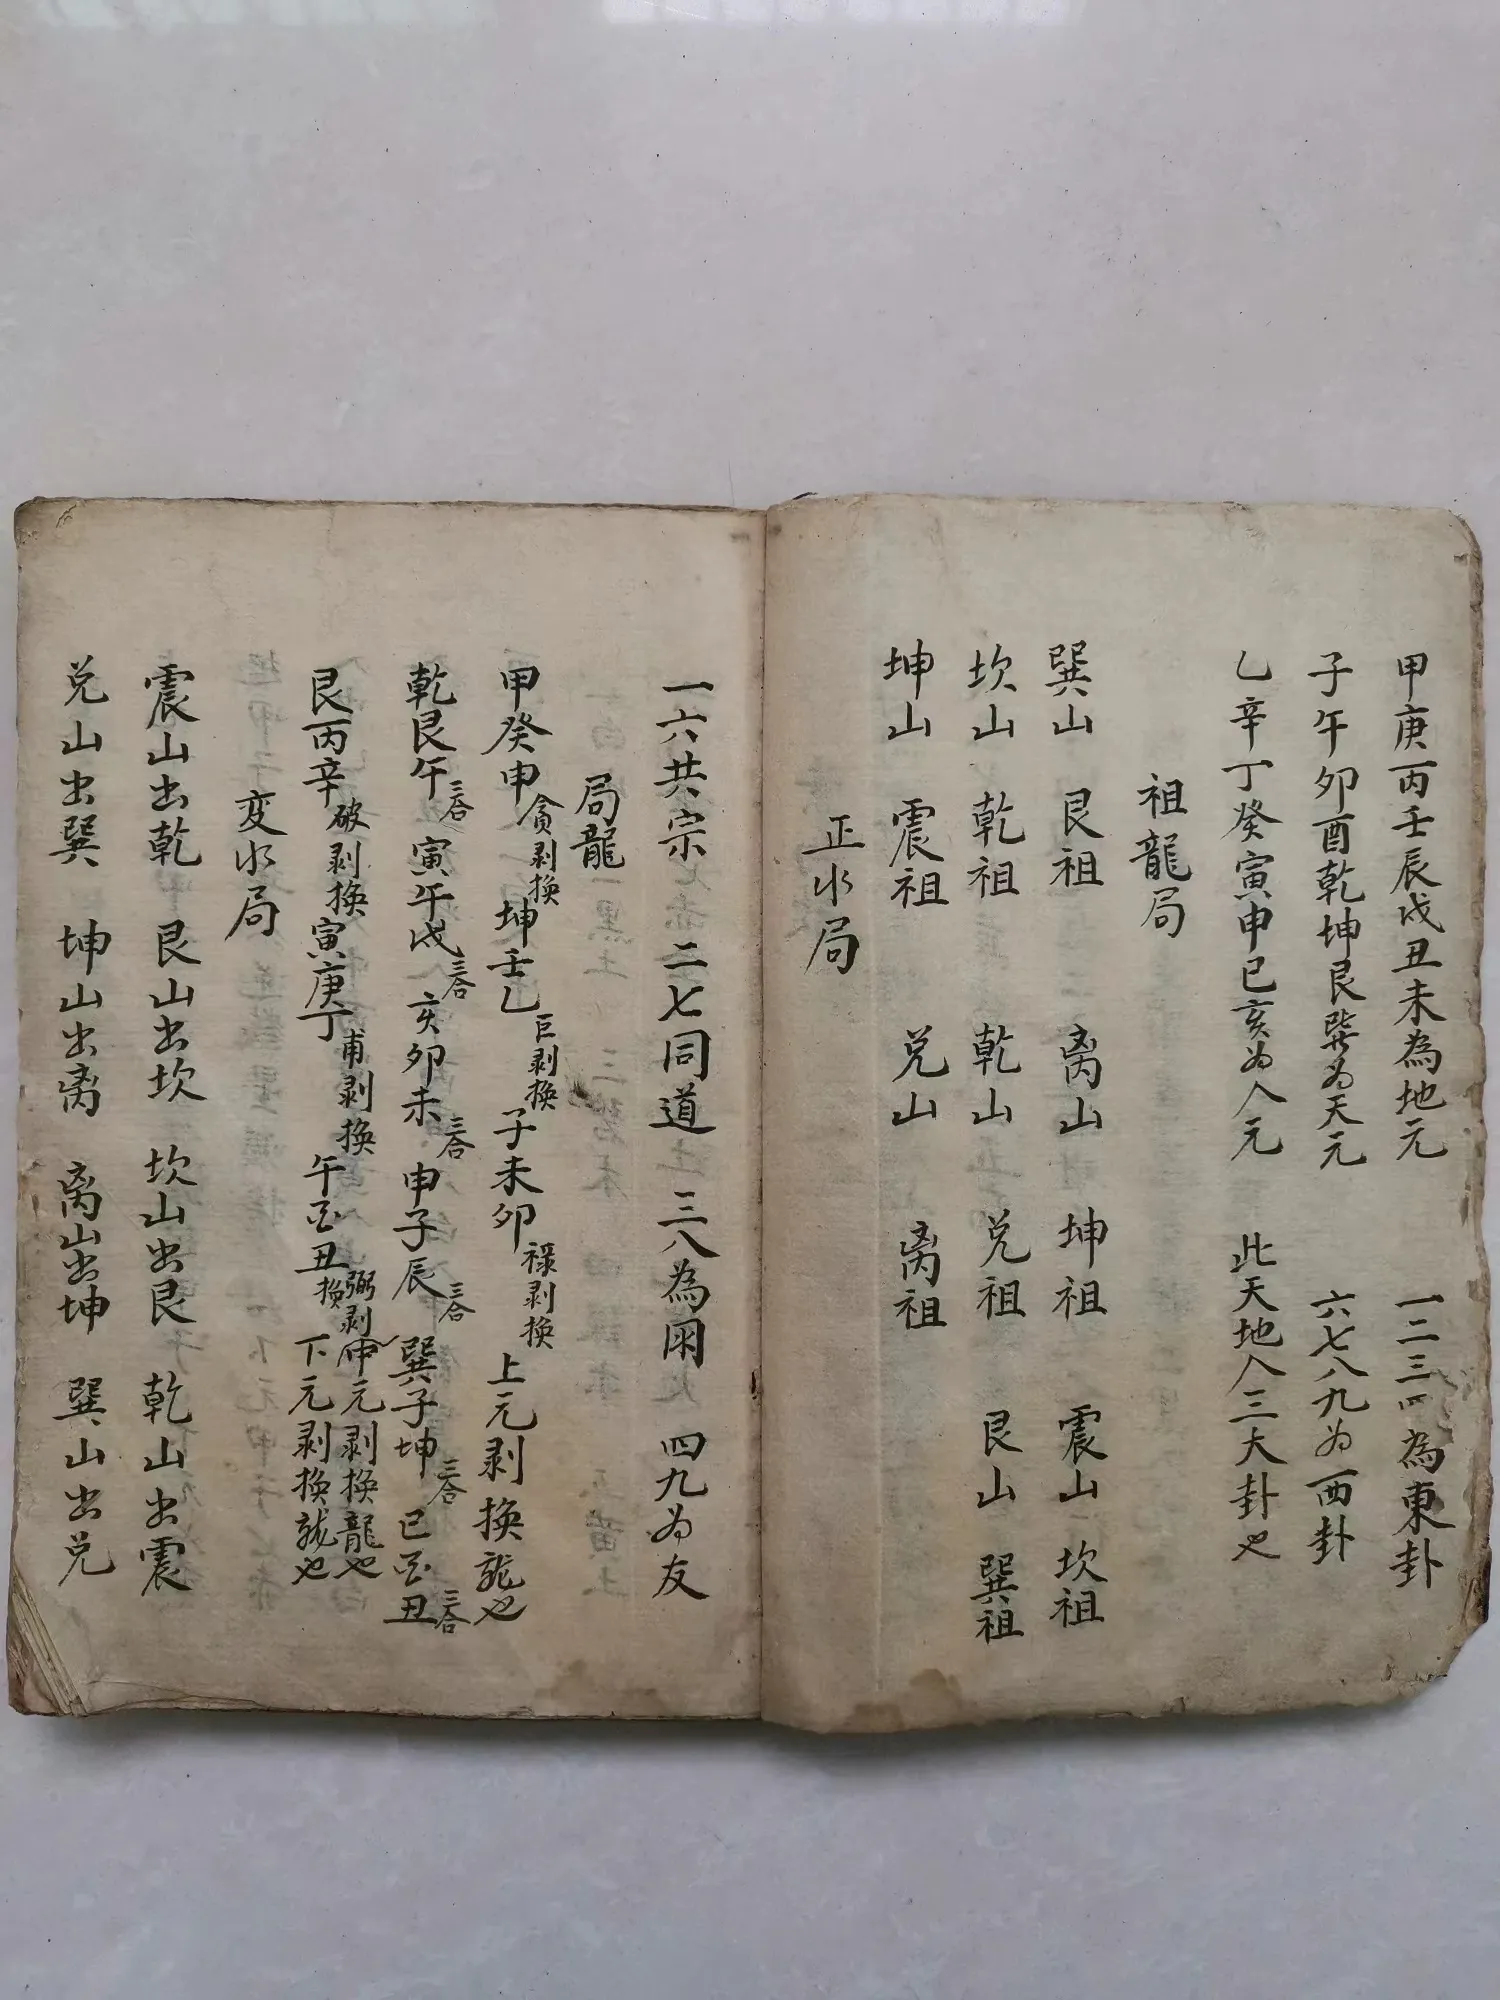 甲庚丙壬辰戌丑未為地元 一二三四為東卦
子午卯酉乾坤艮巽为天元 六七八九为西卦
乙辛丁癸寅申巳亥为人元 此天地人三大卦也
祖龍局
巽山 艮祖 离山 坤祖 震山 坎祖
坎山 乾祖 乾山 兑祖 艮山 巽祖
坤山 震祖 兑山 离祖
正水局
一六共宗 二七同道 三八為朋 四九为友
局龍
甲癸申貪剥換 坤壬乙巨剥換 子未卯禄剥換 上元剥換龍也
乾艮午三合 寅午戌三合 亥卯未三合 申子辰三合 巽子坤三合 巳酉丑三合
艮丙辛破剥換 寅庚丁甫剥換 午酉丑弼剥換 中元剥換龍也 下元剥換龍也
变水局
震山出乾 艮山出坎 坎山出艮 乾山出震
兑山出巽 坤山出离 离山出坤 巽山出兑